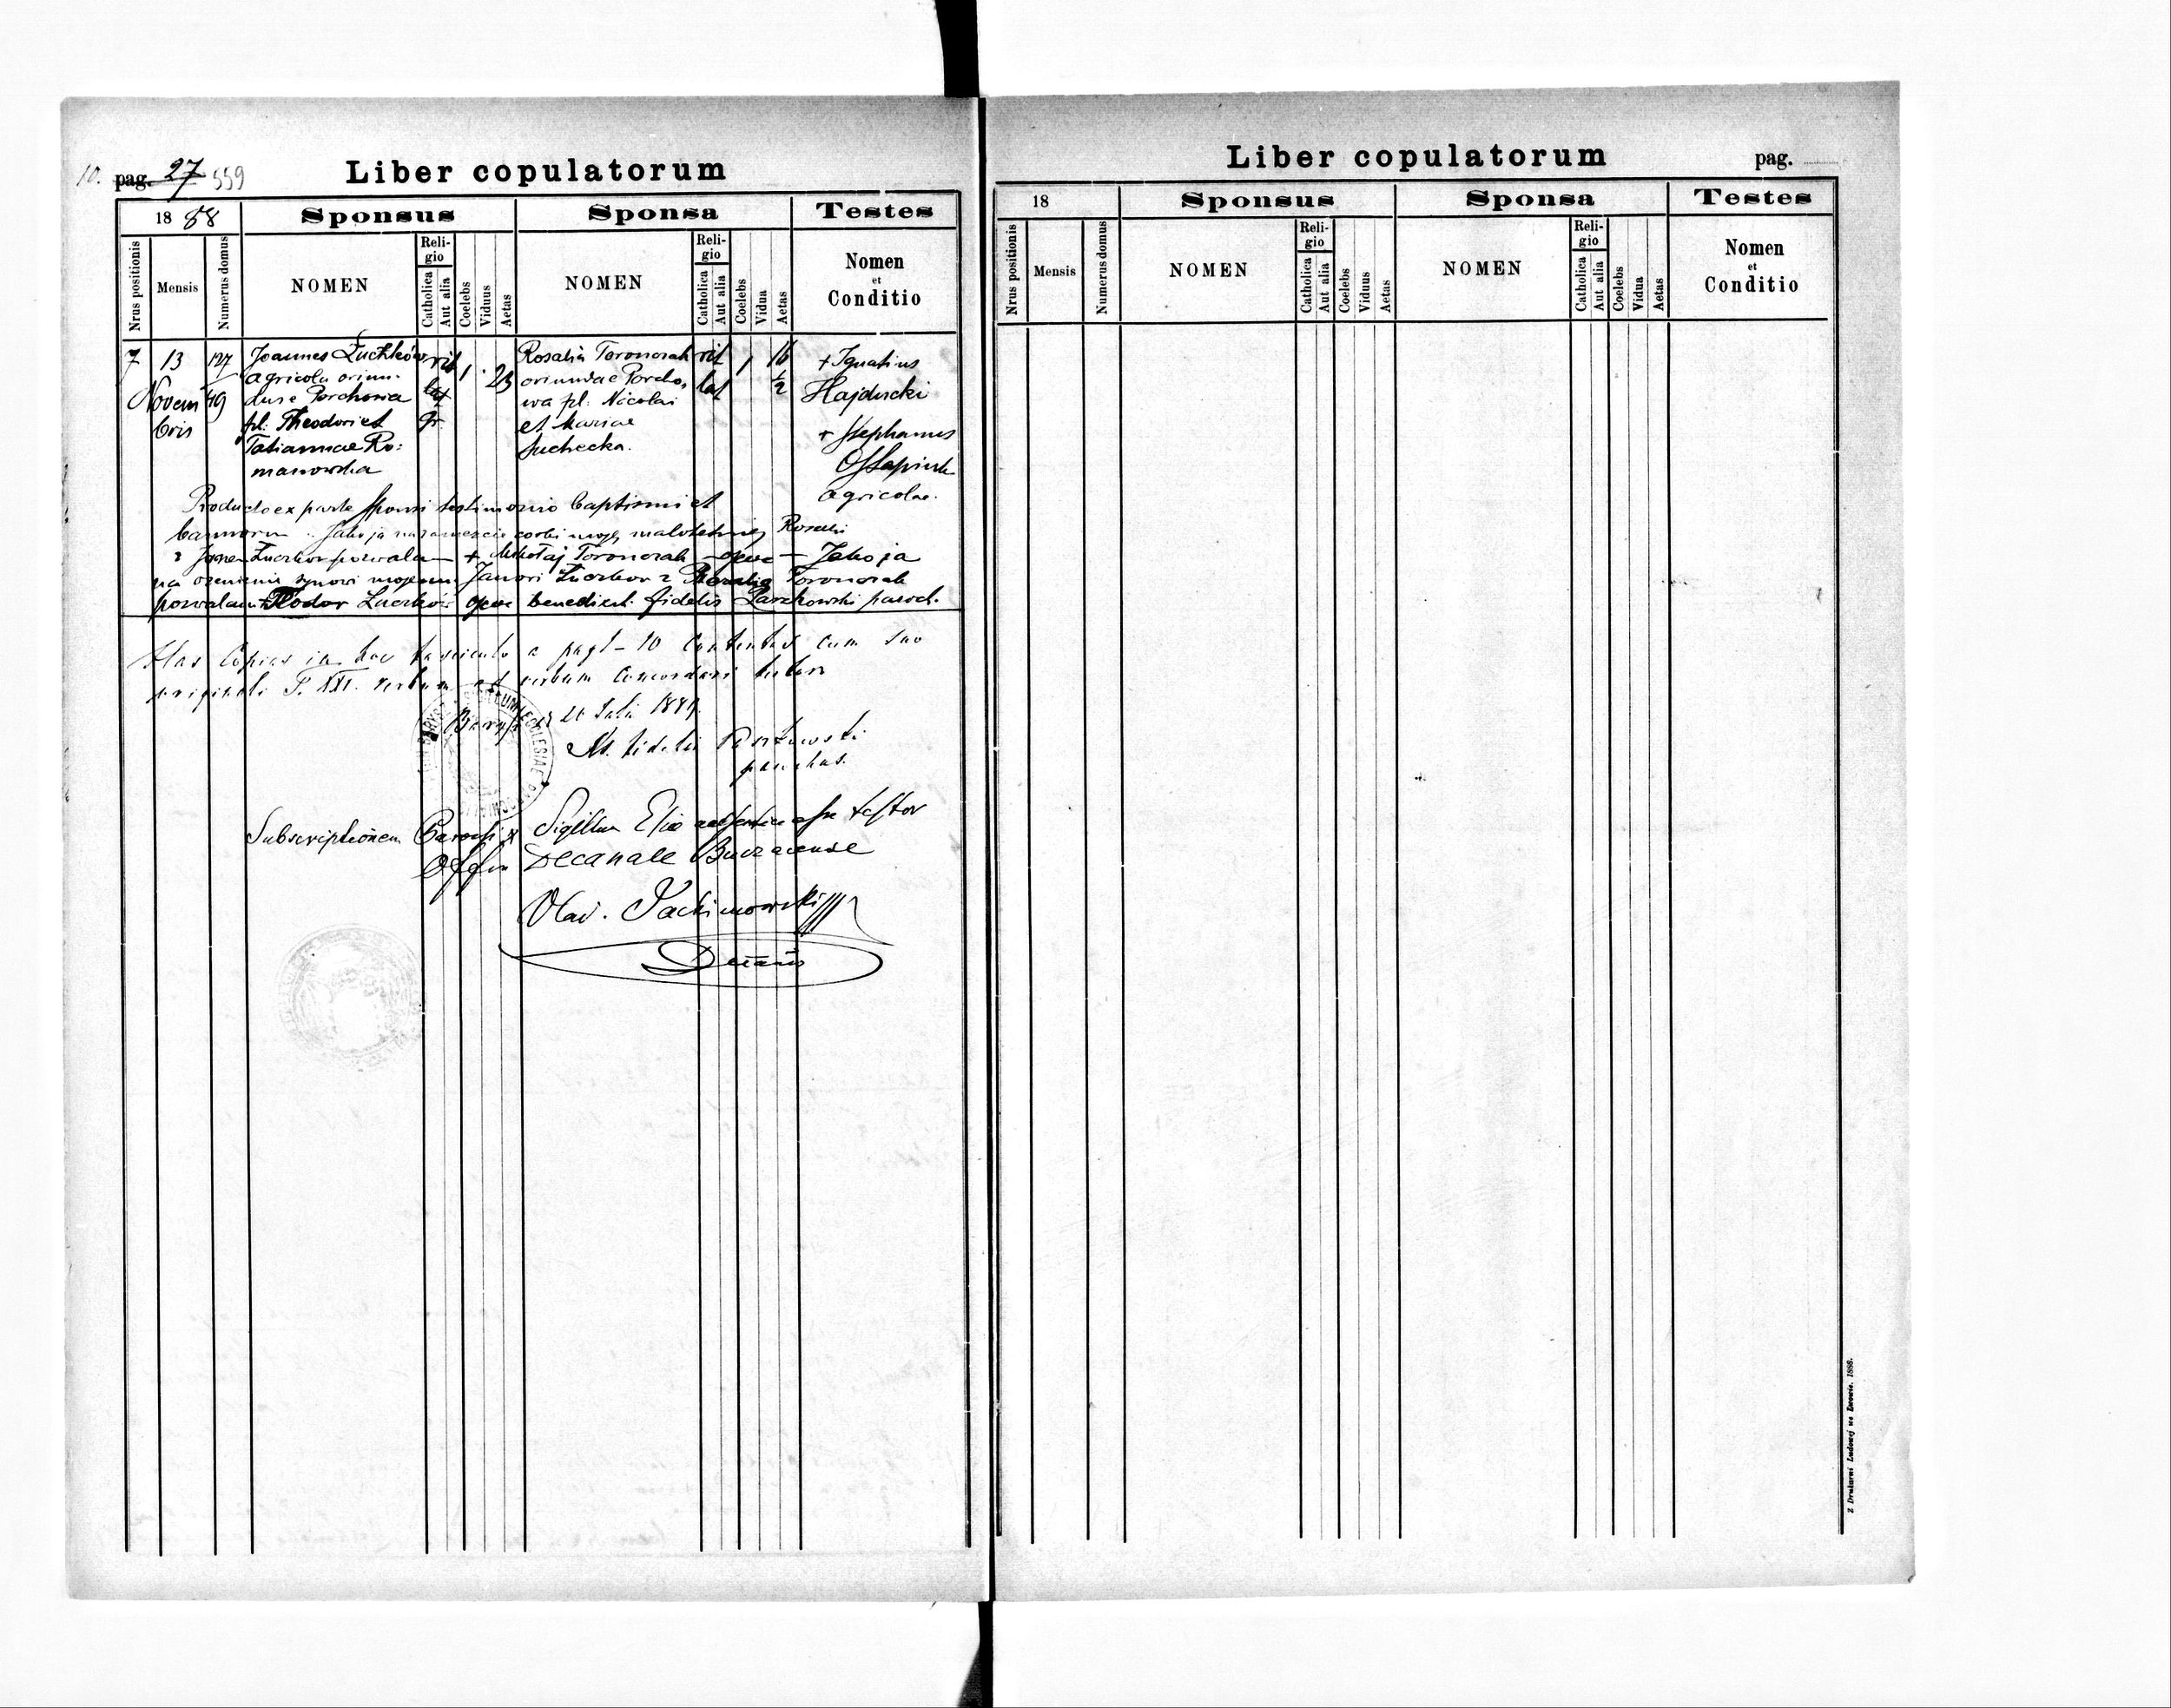 10. pag. 27 559
Liber copulatorum
18 88 Sponsus Sponsa Testes
Nrus positionis Mensis Numerus domus NOMEN Religio Catholica Aut alia Coelebs Viduus Aetas NOMEN Religio Catholica Aut alia Coelebs Vidua Aetas Nomen et Conditio
7 13 Novembris 127 49
Joannes Łuczków
agricola oriun-
dus e Porchowa
fl: Theodori et
Tatiannae Ro:
manowska
rit
gr.
1 23
Rosalia Toronczak
oriundae Porcho,
wa fl: Nicolai
et Mariae
Suchecka.
rit
lat
1 16 1/2
+ Ignatius
Hajducki
+ Stephanus
agricolae.
Producto ex parte sponsi testimonio baptismi et
bannorum Jako ja na zamęście corki mojej małoletniej Rosalii
z Janem Łuczków pozwalam + Mikołaj Toronczak Jako ja
na ozenienie synowi mojemu Janowi Łuczków z Rozalią Toronczak
pozwalam Fedor Łuczków benedixit fidelis paroch.
Has Copias in hoc fasciculo a pag 1 - 10 contentas cum suo
originali T. XII. verbum ad verbum concordari testor
Barysz 1889.
M. fidelis
parochus.
Subscriptionem Parochi et Sigillum Eccl. authentica esse testor
Decanale Buczacense
Vlad. Jachimowski
Decanus
Liber copulatorum pag.
18 Sponsus Sponsa Testes
Nrus positionis Mensis Numerus domus NOMEN Religio Catholica Aut alia Coelebs Viduus Aetas NOMEN Religio Catholica Aut alia Coelebs Vidua Aetas Nomen et Conditio
Z Drukarni Ludowej we Lwowie. 1888.